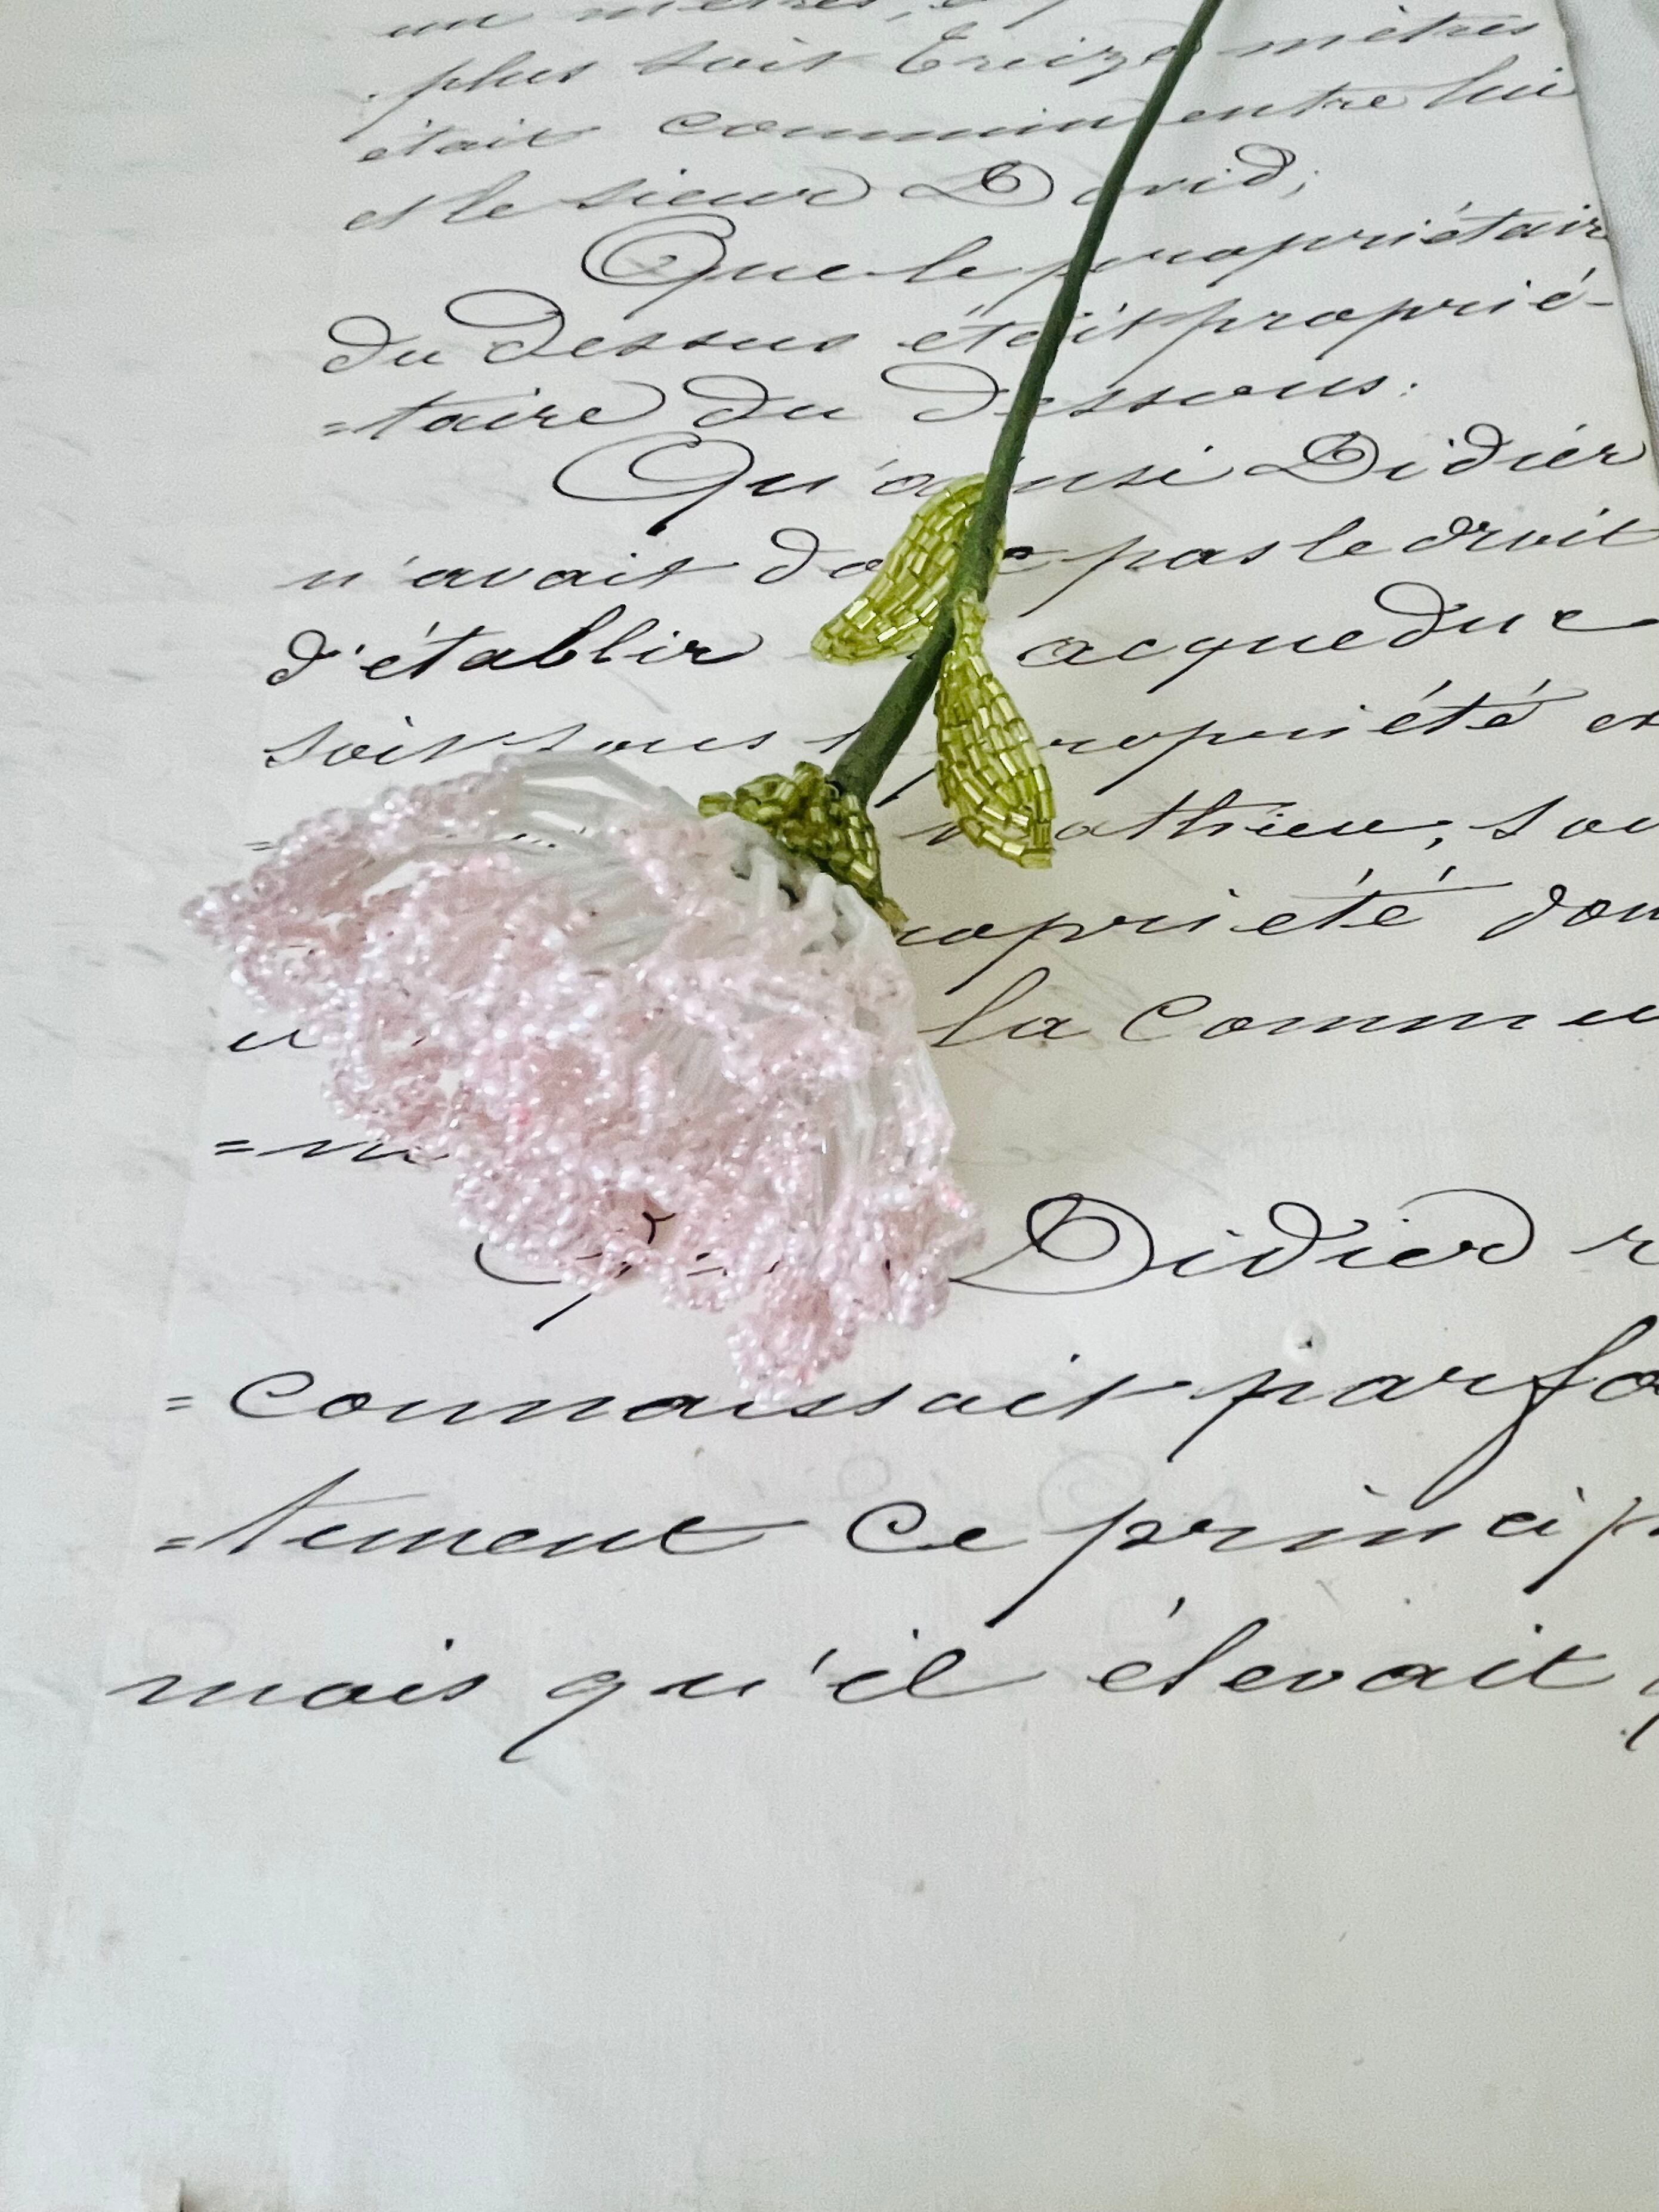 plus soit treize mètres
était commun entre lui
et le sieur David;
Que le propriétair
du dessus était proprié-
=taire du dessous:
Qu'ainsi Didier
n'avait pas le droit
d'établir acqueduc
soit sous propriété
la commu
Didier
=connaissait parfa
=tement ce princip
mais qu'il élevait